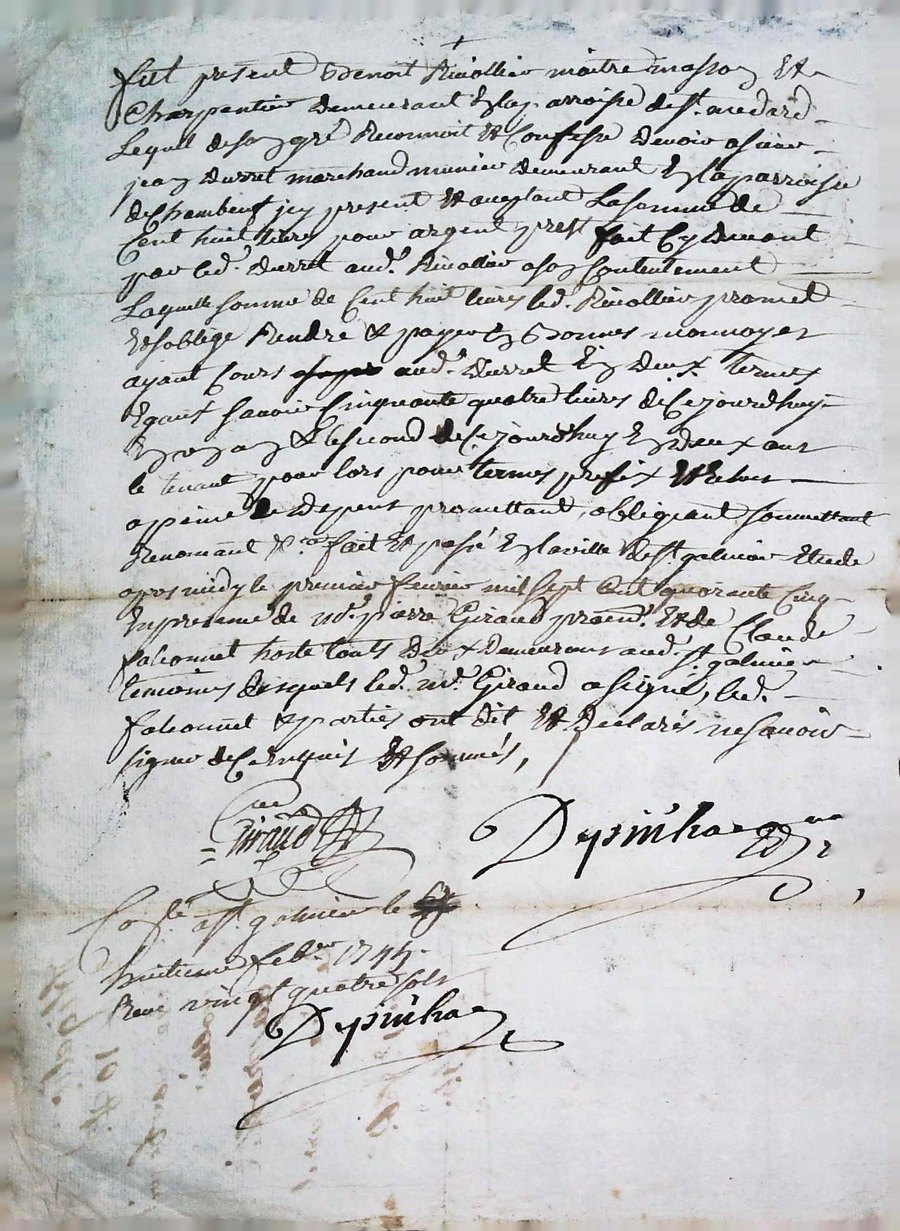 fut present Benoit Rivollier maitre masson Et
Charpentier demeurant En la parroisse de St. medard
Lequel de son gré Reconnoit Et Confesse devoir a sieur
jean durret marchand munier demeurant En la parroisse
de Chambeuf jcy present Et aceptant La somme de
Cent huit livres pour argent prest fait Cy devant
par led. durret aud. Rivollier a son Contentement
Laquelle somme de Cent huit livres led. Rivollier promet
Et soblige Rendre & payer En Bonnes monnoyes
ayant Cours aud. durret En deux termes
Egaux savoir Cinquante quatre livres de Ce jourdhuy
En un an & le second de Ce jourdhuy En deux ans
le tenant pour lors pour termes prefix Et
a peine de depens promettant, obligeant soumettant
Renonçant &ca. fait Et passé En la ville de St. galmier Etude
apres midy le premier fevrier mil sept Cent quarante Cinq
En presence de me. pierre Giraud Et de Claude
falconnet hoste touts deux demeurans aud. St. galmier
temoins desquels led. me. Giraud a signé, led.
falconnet & parties ont dit Et declarés ne savoir
signer de Ce Enquis Et sommés,
Giraud
Depinhac
Conlé. a St. galmier le
huitieme feber 1745.
Receu vingt quatre sols
Depinhac